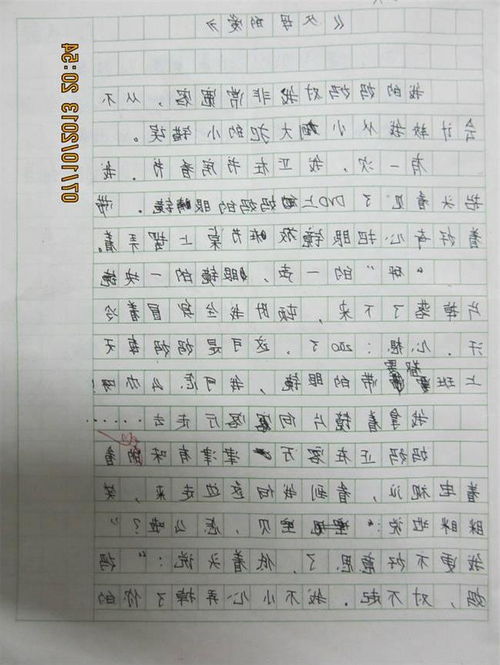 《父母的爱》
我的妈妈对我非常宽容，从不
会计较我从小大犯的小错误。
有一次，我正在书房看书，我
抬头看见了DVD上妈妈的眼镜。带
着好奇心把眼镜放在书桌上摆弄着。
“砰”的一声，眼镜的一块镜
片掉落了下来，顿时我全身冒着冷
汗。心想：200了，这可是妈妈每天
上班都要带的眼镜，我可怎么办啊
我拿着镜片向客厅走去……
妈妈正在客厅津津有味的看
着电视，看到我向她边走来，笑
眯眯地说：“宝贝，怎么啦？”
我更不好意思了，低着头说：“妈
妈，对不起。我不小心弄掉了你的
07/01/2013 20:54